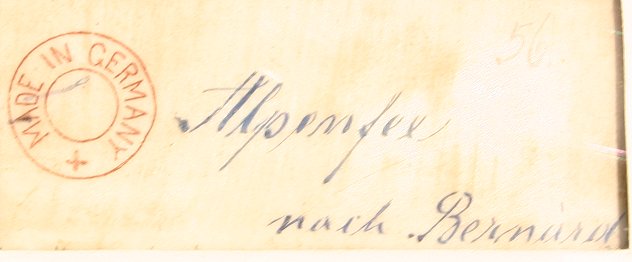 MADE IN GERMANY
56.
Alpenfee
nach Bernard